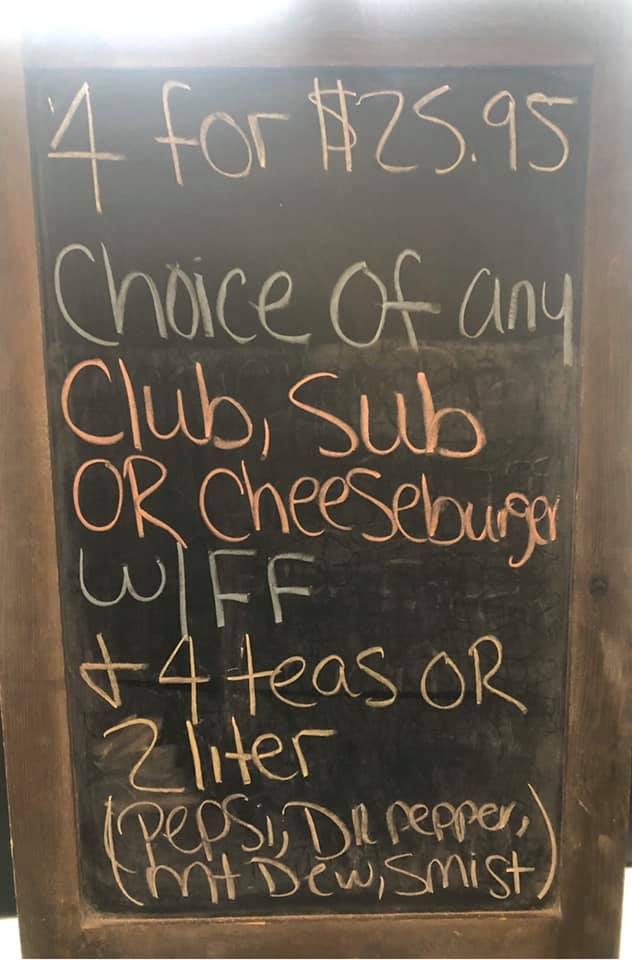 4 for $25.95
Choice Of any
Club, Sub
OR Cheeseburger
W/FF
+ 4 teas OR
2 liter
(Pepsi, DR Pepper,
mt Dew, Smist)